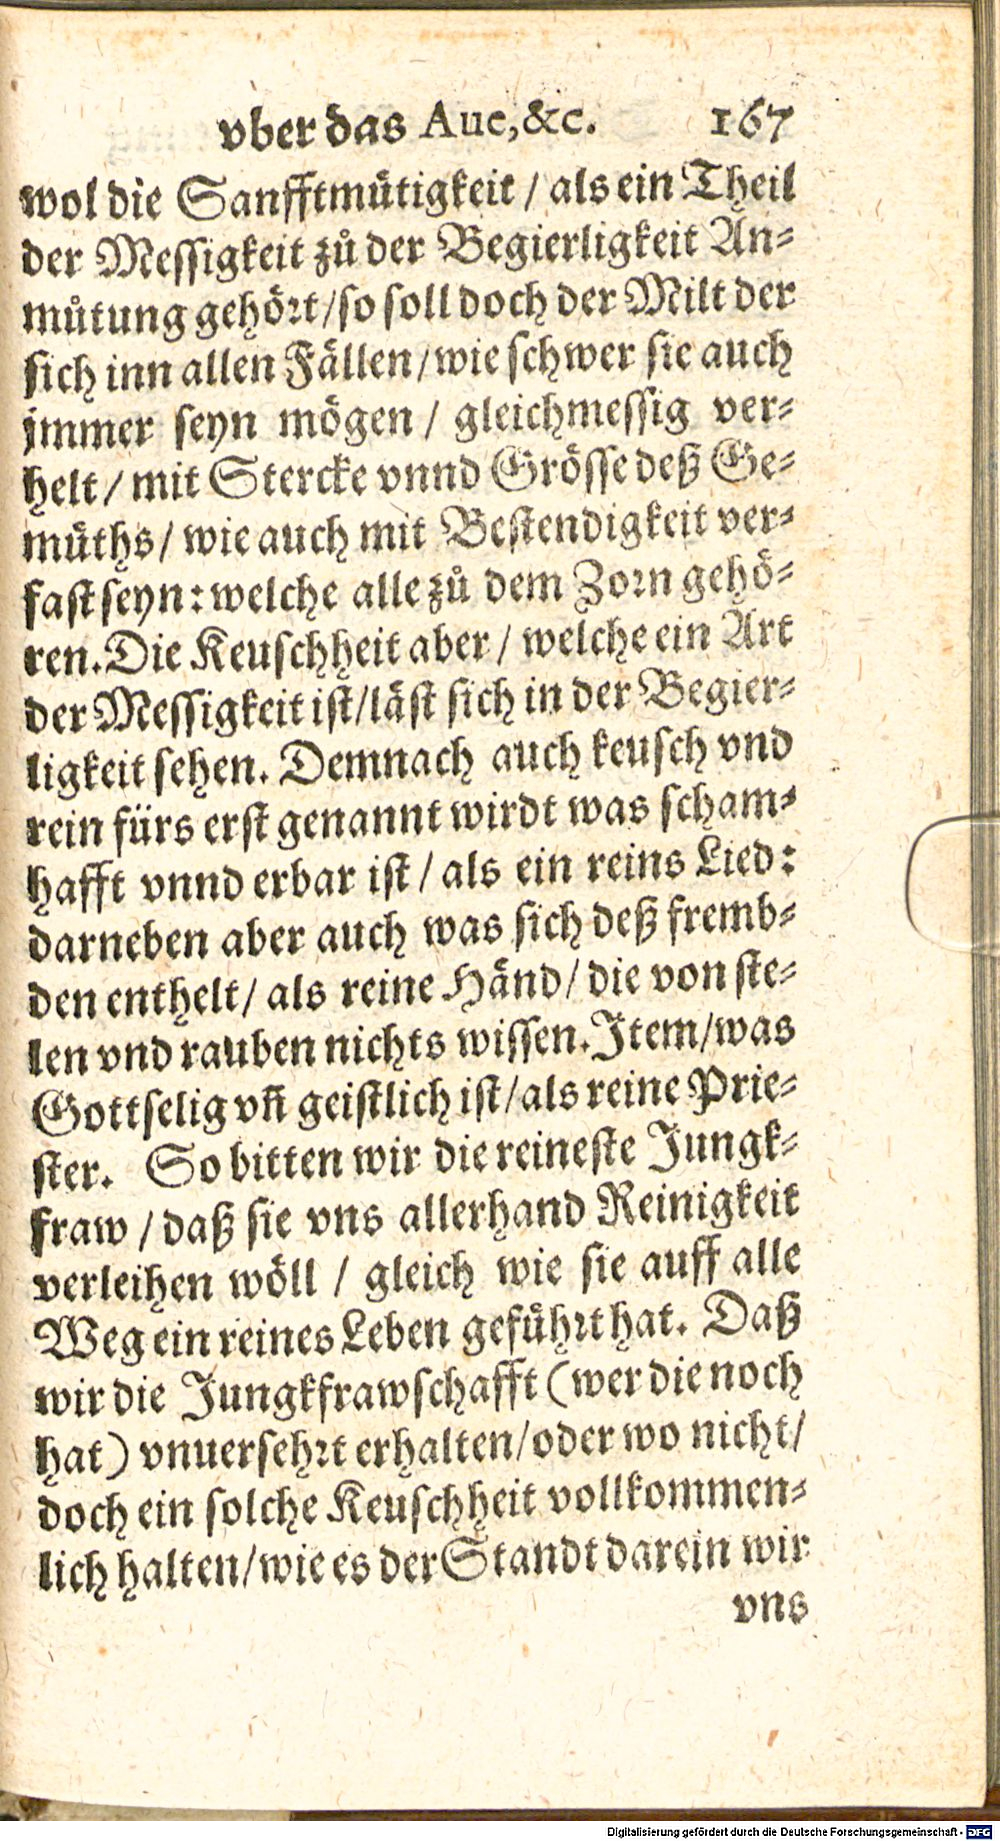 vber das Aue,&c. 167
wol die Sanfftmütigkeit / als ein Theil
der Messigkeit zů der Begierligkeit An⸗
můtung gehört/so soll doch der Milt der
sich inn allen Fällen/wie schwer sie auch
jmmer seyn mögen / gleichmessig ver⸗
helt / mit Stercke vnnd Grösse deß Ge⸗
müths/ wie auch mit Bestendigkeit ver⸗
fast seyn: welche alle zů dem Zorn gehö⸗
ren. Die Keuschheit aber / welche ein Art
der Messigkeit ist/läst sich in der Begier⸗
ligkeit sehen. Demnach auch keusch vnd
rein fürs erst genannt wirdt was scham⸗
hafft vnnd erbar ist / als ein reins Lied:
darneben aber auch was sich deß fremb⸗
den enthelt/ als reine Händ/ die von ste⸗
len vnd rauben nichts wissen. Item/was
Gottselig vñ geistlich ist/als reine Prie⸗
ster. So bitten wir die reineste Jungk⸗
fraw / daß sie vns allerhand Reinigkeit
verleihen wöll / gleich wie sie auff alle
Weg ein reines Leben geführt hat. Daß
wir die Jungkfrawschafft (wer die noch
hat) vnuersehrt erhalten/oder wo nicht/
doch ein solche Keuschheit vollkommen⸗
lich halten/wie es der Standt darein wir
vns
Digitalisierung gefördert durch die Deutsche Forschungsgemeinschaft - DFG